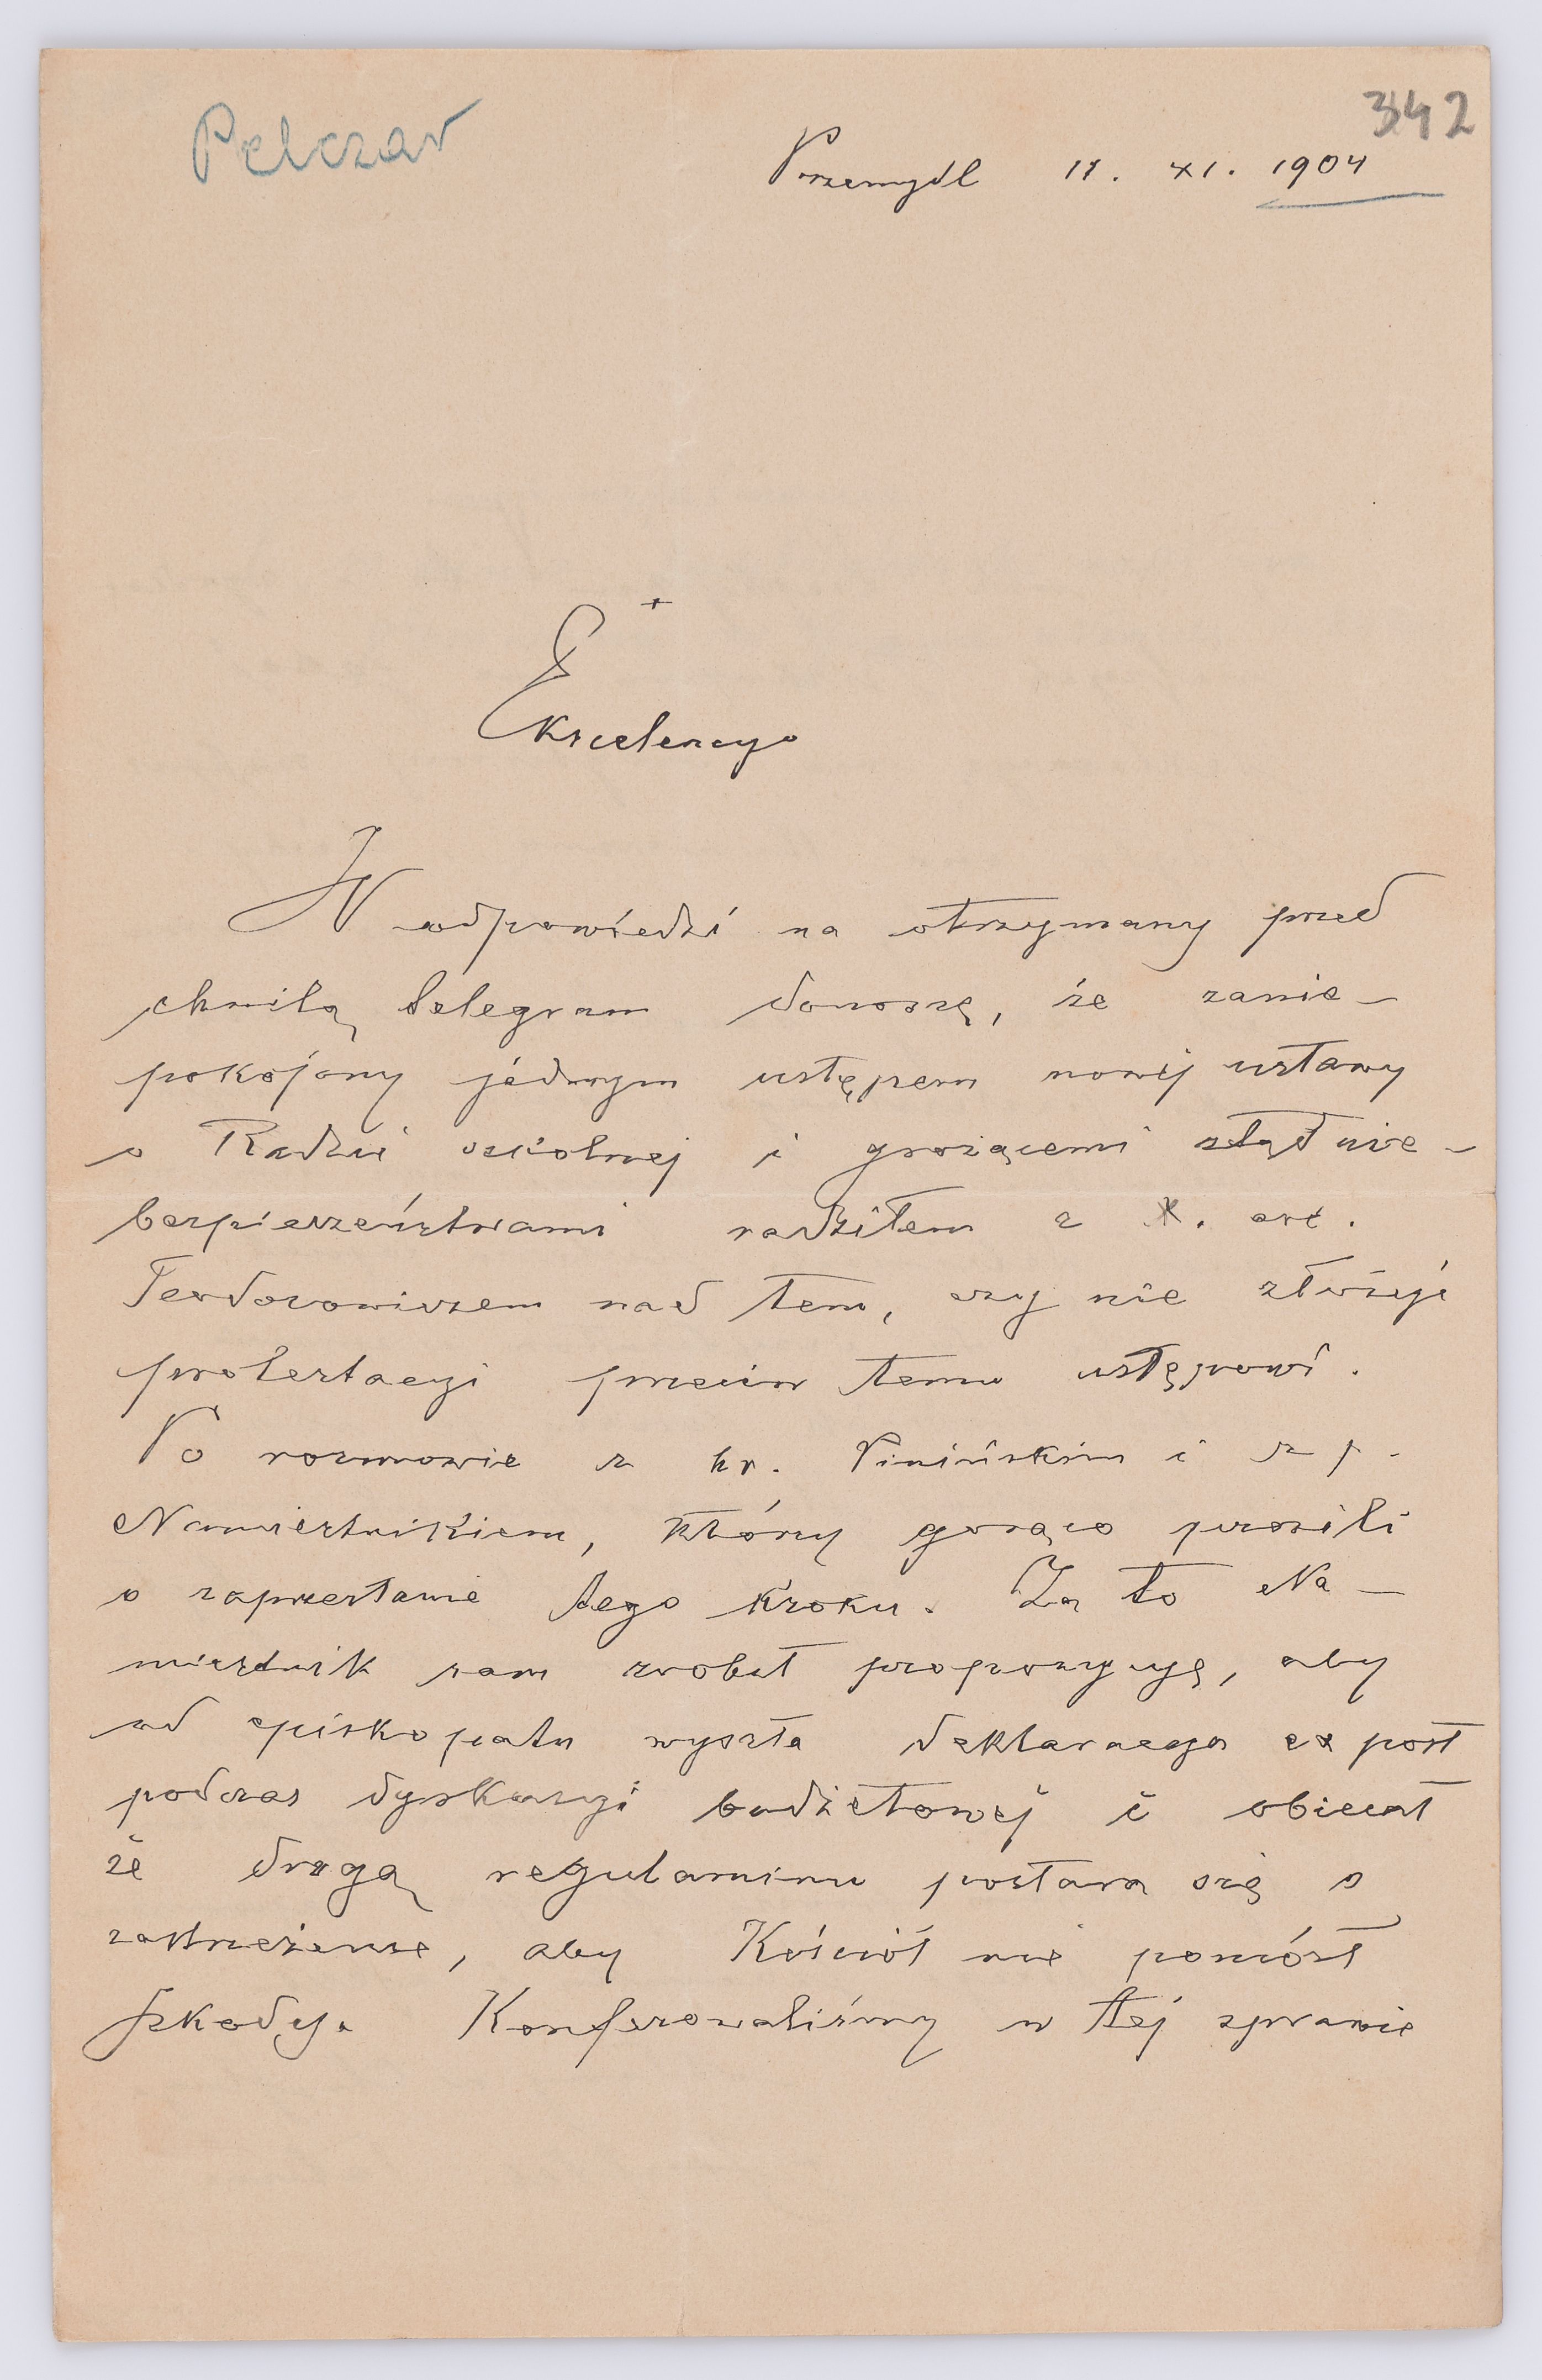 Pelczar
342
Przemyśl 11. XI. 1904
+
Ekscelencyo
W odpowiedzi na otrzymany przed
chwilą telegram donoszę, że zanie-
pokojony jednym ustępem nowej ustawy
o Radzie szkolnej i grożącemi ztąd nie-
bezpieczeństwami radziłem z X. arc.
Teodorowiczem nad tem, czy nie złożyć
protestacyi przeciw temu ustępowi.
Po rozmowie z hr. Pinińskim i z p.
Namiestnikiem, którzy gorąco prosili
o zaprzestanie tego kroku. Za to Na-
miestnik sam zrobił propozycyę, aby
od episkopatu wyszła deklaracya ex post
podczas dyskusyi budżetowej i obiecał
że drogą regulaminu postara się o
zastrzeżenie, aby Kościół nie poniósł
szkody. Konferowaliśmy w tej sprawie